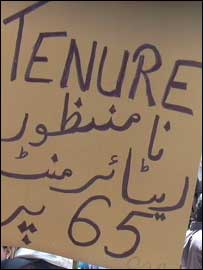 TENURE
نا منظور
ریٹائرمنٹ
65 پر